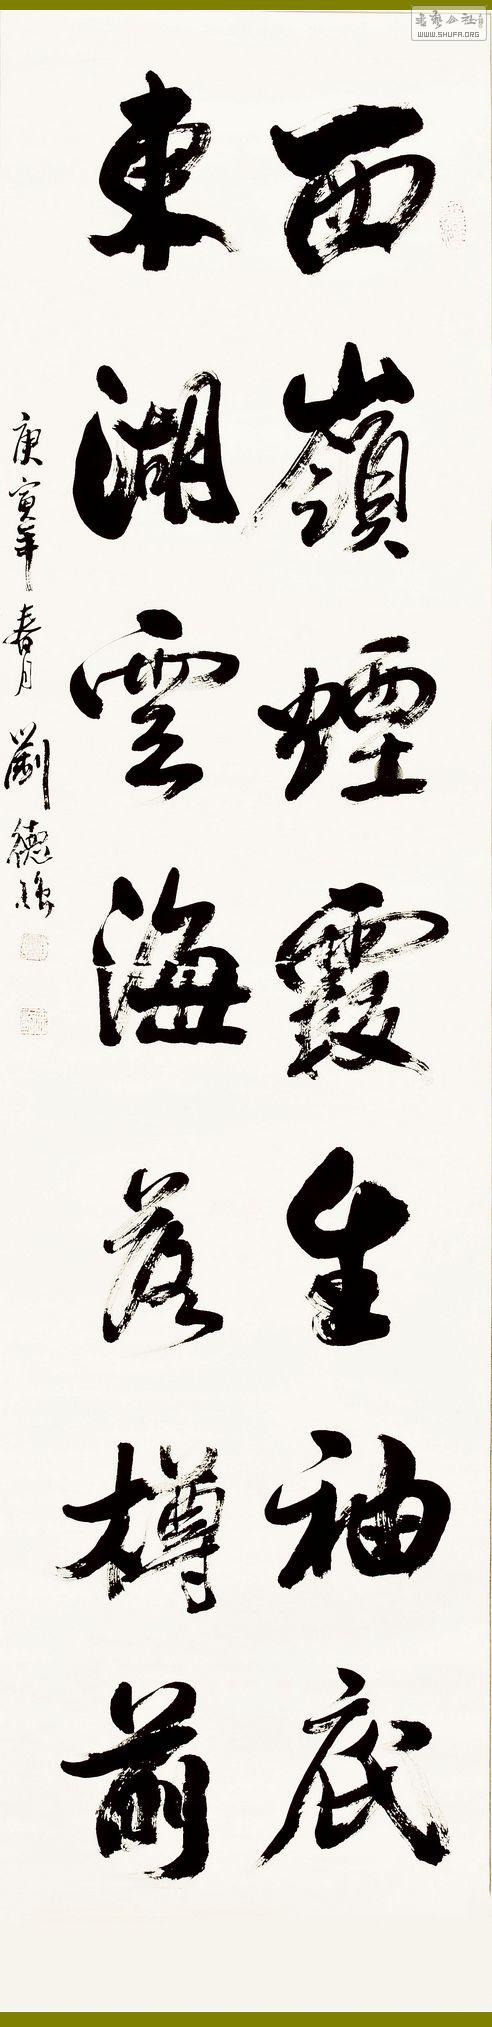 西嶺煙霞生袖底
東湖雲海落樽前
庚寅年春月劉德
書藝公社
WWW.SHUFA.ORG